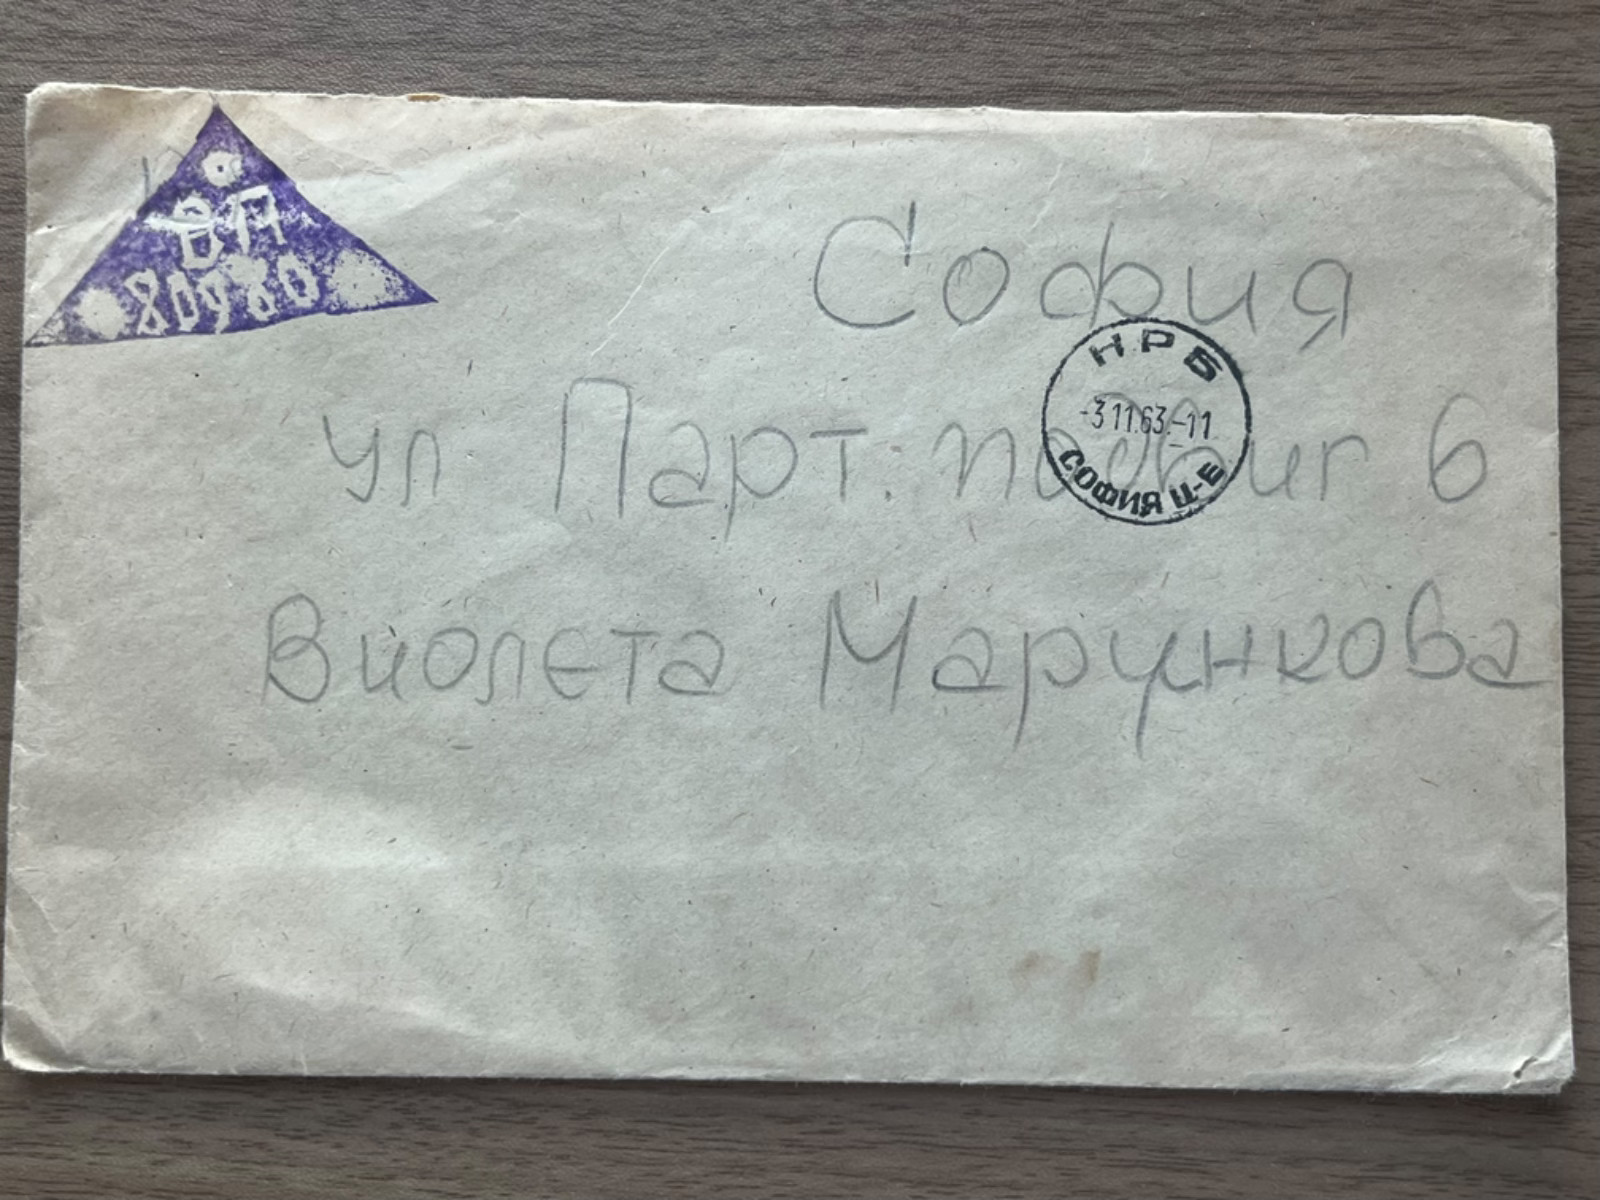 ВП
80980
София
НРБ
-3 11.63.-11
СОФИЯ Ц-Е
ул Парт. подвиг 6
Виолета Марункова